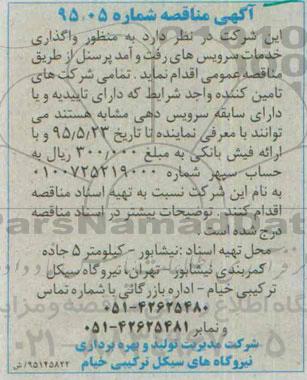 آگهی مناقصه شماره ۹۵.۰۵
این شرکت در نظر دارد به منظور واگذاری
خدمات سرویس های رفت و آمد پرسنل از طریق
مناقصه عمومی اقدام نماید. تمامی شرکت های
تامین کننده واجد شرایط که دارای تاییدیه و یا
دارای سابقه سرویس دهی مشابه هستند می
توانند با معرفی نماینده تا تاریخ ۹۵/۵/۲۳ و با
ارائه فیش بانکی به مبلغ ۳۰۰٫۰۰۰ ریال به
حساب سپهر شماره ۰۱۰۰۷۲۵۲۱۹۰۰۰
به نام این شرکت نسبت به تهیه اسناد مناقصه
اقدام کنند. توضیحات بیشتر در اسناد مناقصه
درج شده است.
محل تهیه اسناد: نیشابور - کیلومتر ۵ جاده
کمربندی نیشابور - تهران، نیروگاه سیکل
ترکیبی خیام - اداره بازرگانی با شماره تماس
۰۵۱-۴۲۶۲۵۴۸۰
و نمابر ۴۲۶۲۵۴۸۱-۰۵۱
شرکت مدیریت تولید و بهره برداری
نیروگاه های سیکل ترکیبی خیام
۹۵۱۴۵۸۲۲/ش